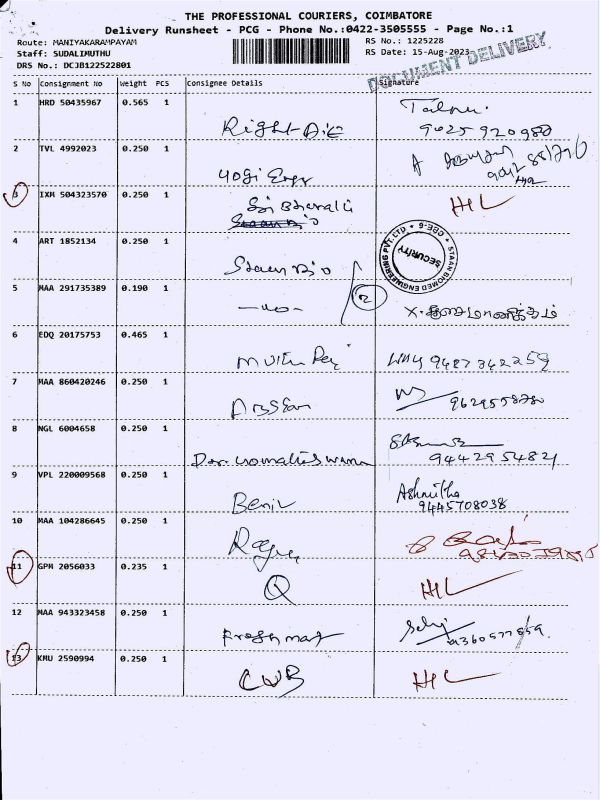 THE PROFESSIONAL COURIERS, COIMBATORE
Delivery Runsheet - PCG - Phone No.:0422-3505555 - Page No.:1
Route: MANIYAKARAMPAYAM
RS No.: 1225228
Staff: SUDALIMUTHU
RS Date: 15-Aug-2023
DRS No.: DCJB122522801
DOCUMENT DELIVERY
S No Consignment No Weight PCS Consignee Details Signature
1 HRD 50435967 0.565 1
Right
9625920980
2 TVL 4992023 0.250 1
Yogi
3 IXM 504323570 0.250 1
Sri Bharathi
HL
4 ART 1852134 0.250 1
Staan Bio
STAAN BIOMED ENGINEERING PVT.LTD
CBE-6
SECURITY
5 MAA 291735389 0.190 1
2
6 EDQ 20175753 0.465 1
Muthu
9487342259
7 MAA 860420246 0.250 1
9629558780
8 NGL 6004658 0.250 1
9442954821
9 VPL 220009568 0.250 1
Benil
Ashritha
9445708038
10 MAA 104286645 0.250 1
11 GPM 2056033 0.235 1
Q
HL
12 MAA 943323458 0.250 1
9360577559
13 KMU 2590994 0.250 1
CUB
HL